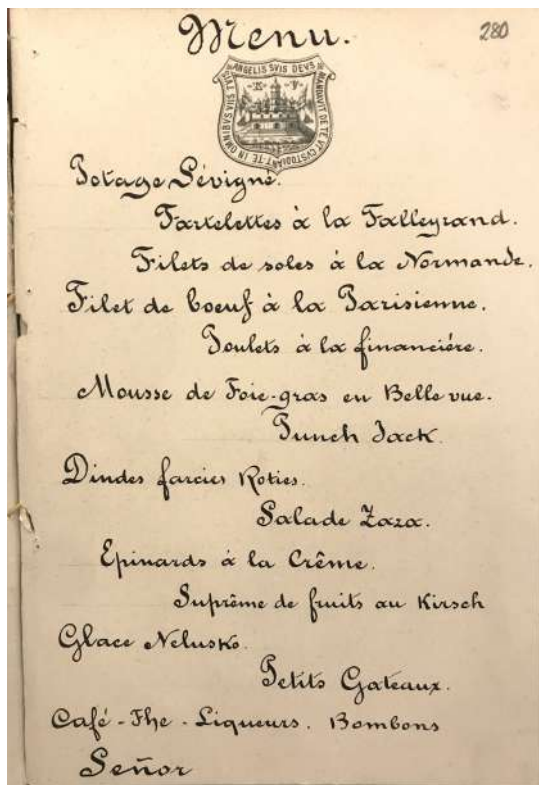 Menu.
280
ANGELIS SVIS DEVS MANDAVIT DE TE VT CVSTODIANT TE IN OMNIBVS VIIS TVIS
K V
Potage Sévigné.
Tartelettes à la Talleyrand.
Filets de soles à la Normande.
Filet de boeuf à la Parisienne.
Poulets à la financiére.
Mousse de Foie-gras en Belle vue.
Punch Jack.
Dindes farcies Roties.
Salade Zaza.
Epinards à la Crême.
Suprême de fruits au Kirsch
Glace Nelusko.
Petits Gateaux.
Café - The - Liqueurs. Bombons
Señor